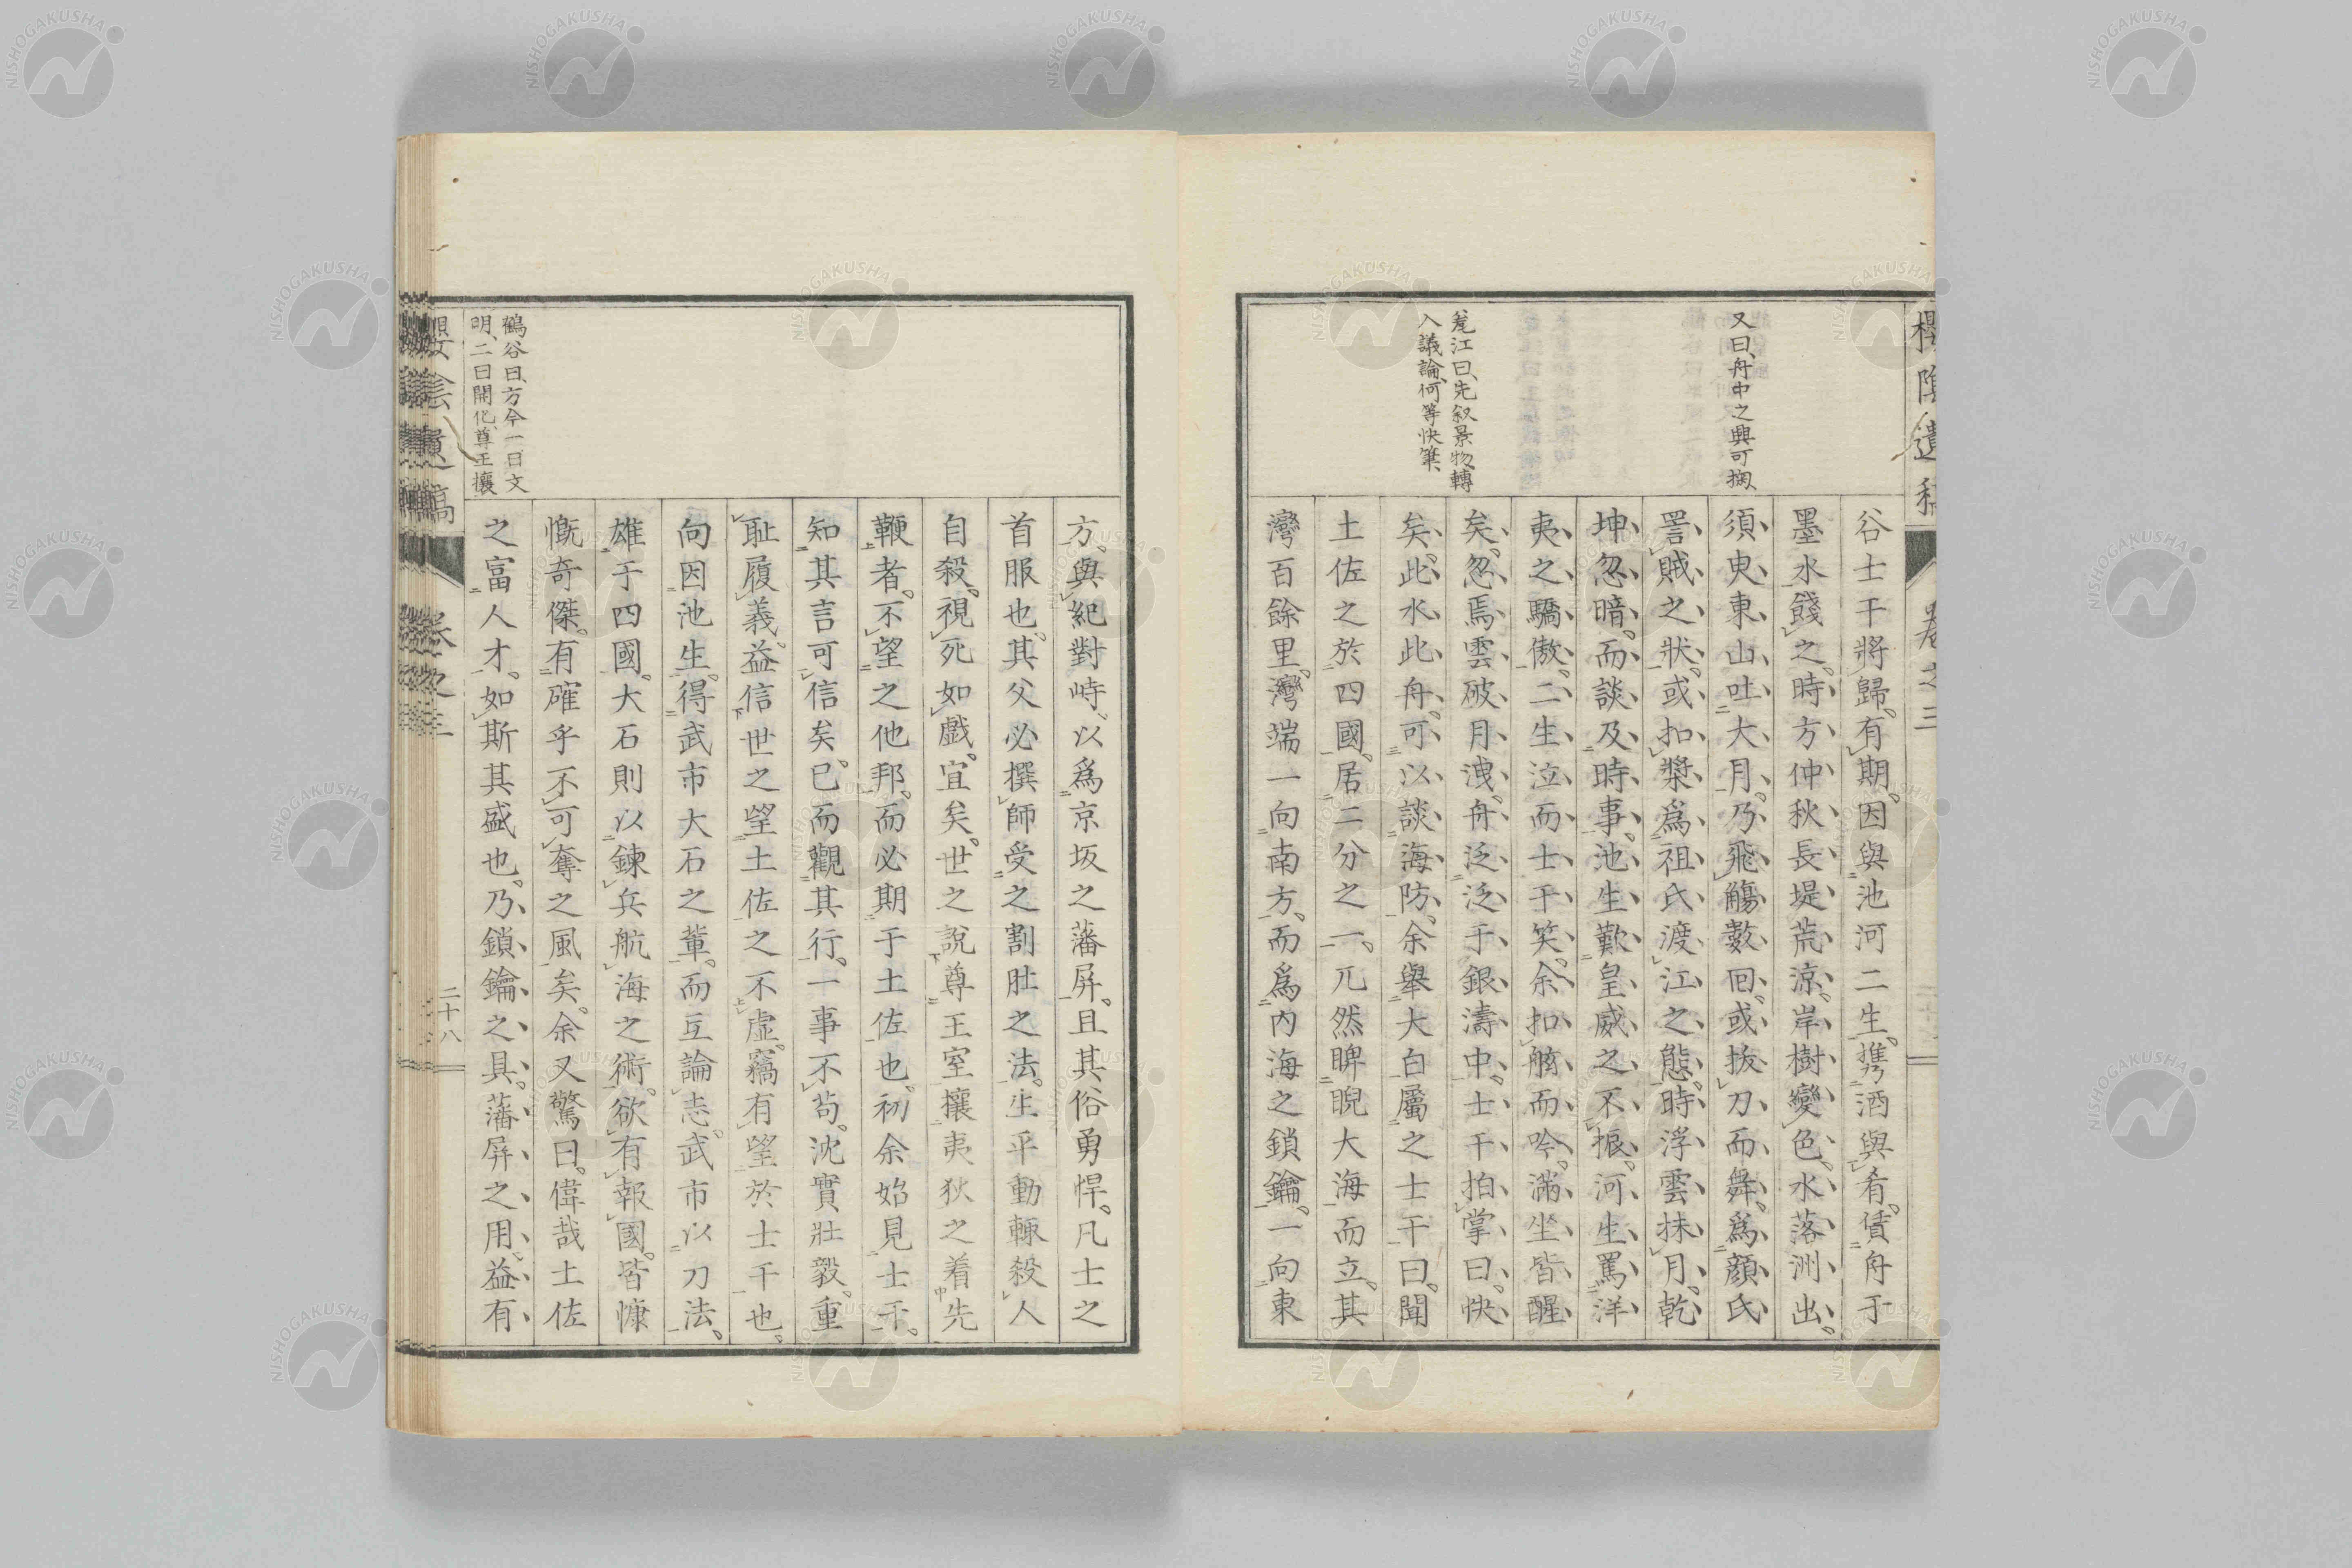 又曰、舟中之興可掬、
入議論、何等快筆、
谷士干將歸。有期。因與池河二生。携酒與肴。賃舟于
墨水餞之。時方仲秋長堤荒涼。岸樹變色。水落洲出。
須臾東山吐大月。乃飛觴數回。或拔刀而舞。爲顔氏
詈賊之狀。或扣槳爲祖氏渡江之態。時浮雲抹月。乾
坤忽暗。而談及時事。池生歎皇威之不振。河生罵洋
夷之驕傲。二生泣而士干笑。余扣舷而吟。滿坐皆醒
矣。忽焉雲破月洩。舟泛泛乎銀濤中。士干拍掌曰。快
矣。此水此舟。可以談海防。余舉大白屬之士干曰。聞
土佐之於四國。居二分之一。兀然睥睨大海而立。其
灣百餘里。灣端一向南方。而爲內海之鎖鑰。一向東
方。與紀對峙。以爲京坂之藩屏。且其俗勇悍。凡士之
首服也。其父必撰師受之割肚之法。生平動輙殺人
自殺。視死如戲。宜矣。世之說尊王室攘夷狄之着先
鞭者。不望之他邦。而必期于土佐也。初余始見士干。
知其言可信矣。已而觀其行。一事不苟。沈實壯毅。重
耻履義。益信世之望土佐之不虛。竊有望於士干也。
向因池生。得武市大石之輩。而互論志。武市以刀法。
雄于四國。大石則以鍊兵航海之術。欲有報國。皆慷
慨奇傑。有確乎不可奪之風矣。余又驚曰。偉哉土佐
之富人才。如斯其盛也。乃鎖鑰之具。藩屏之用。益有
鶴谷曰、方今一曰文
明、二曰開化、尊王攘
二十八